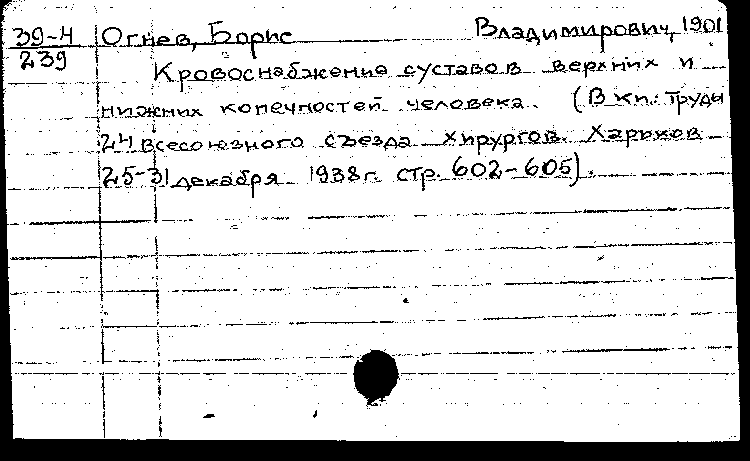 39-4 Огнев, Борис Владимирович, 1901
239
Кровоснабжение суставов верхних и
нижних конечностей человека. (В кн.: Труды
24 Всесоюзного съезда хирургов. Харьков
25-31 декабря 1938г. стр. 602-605).